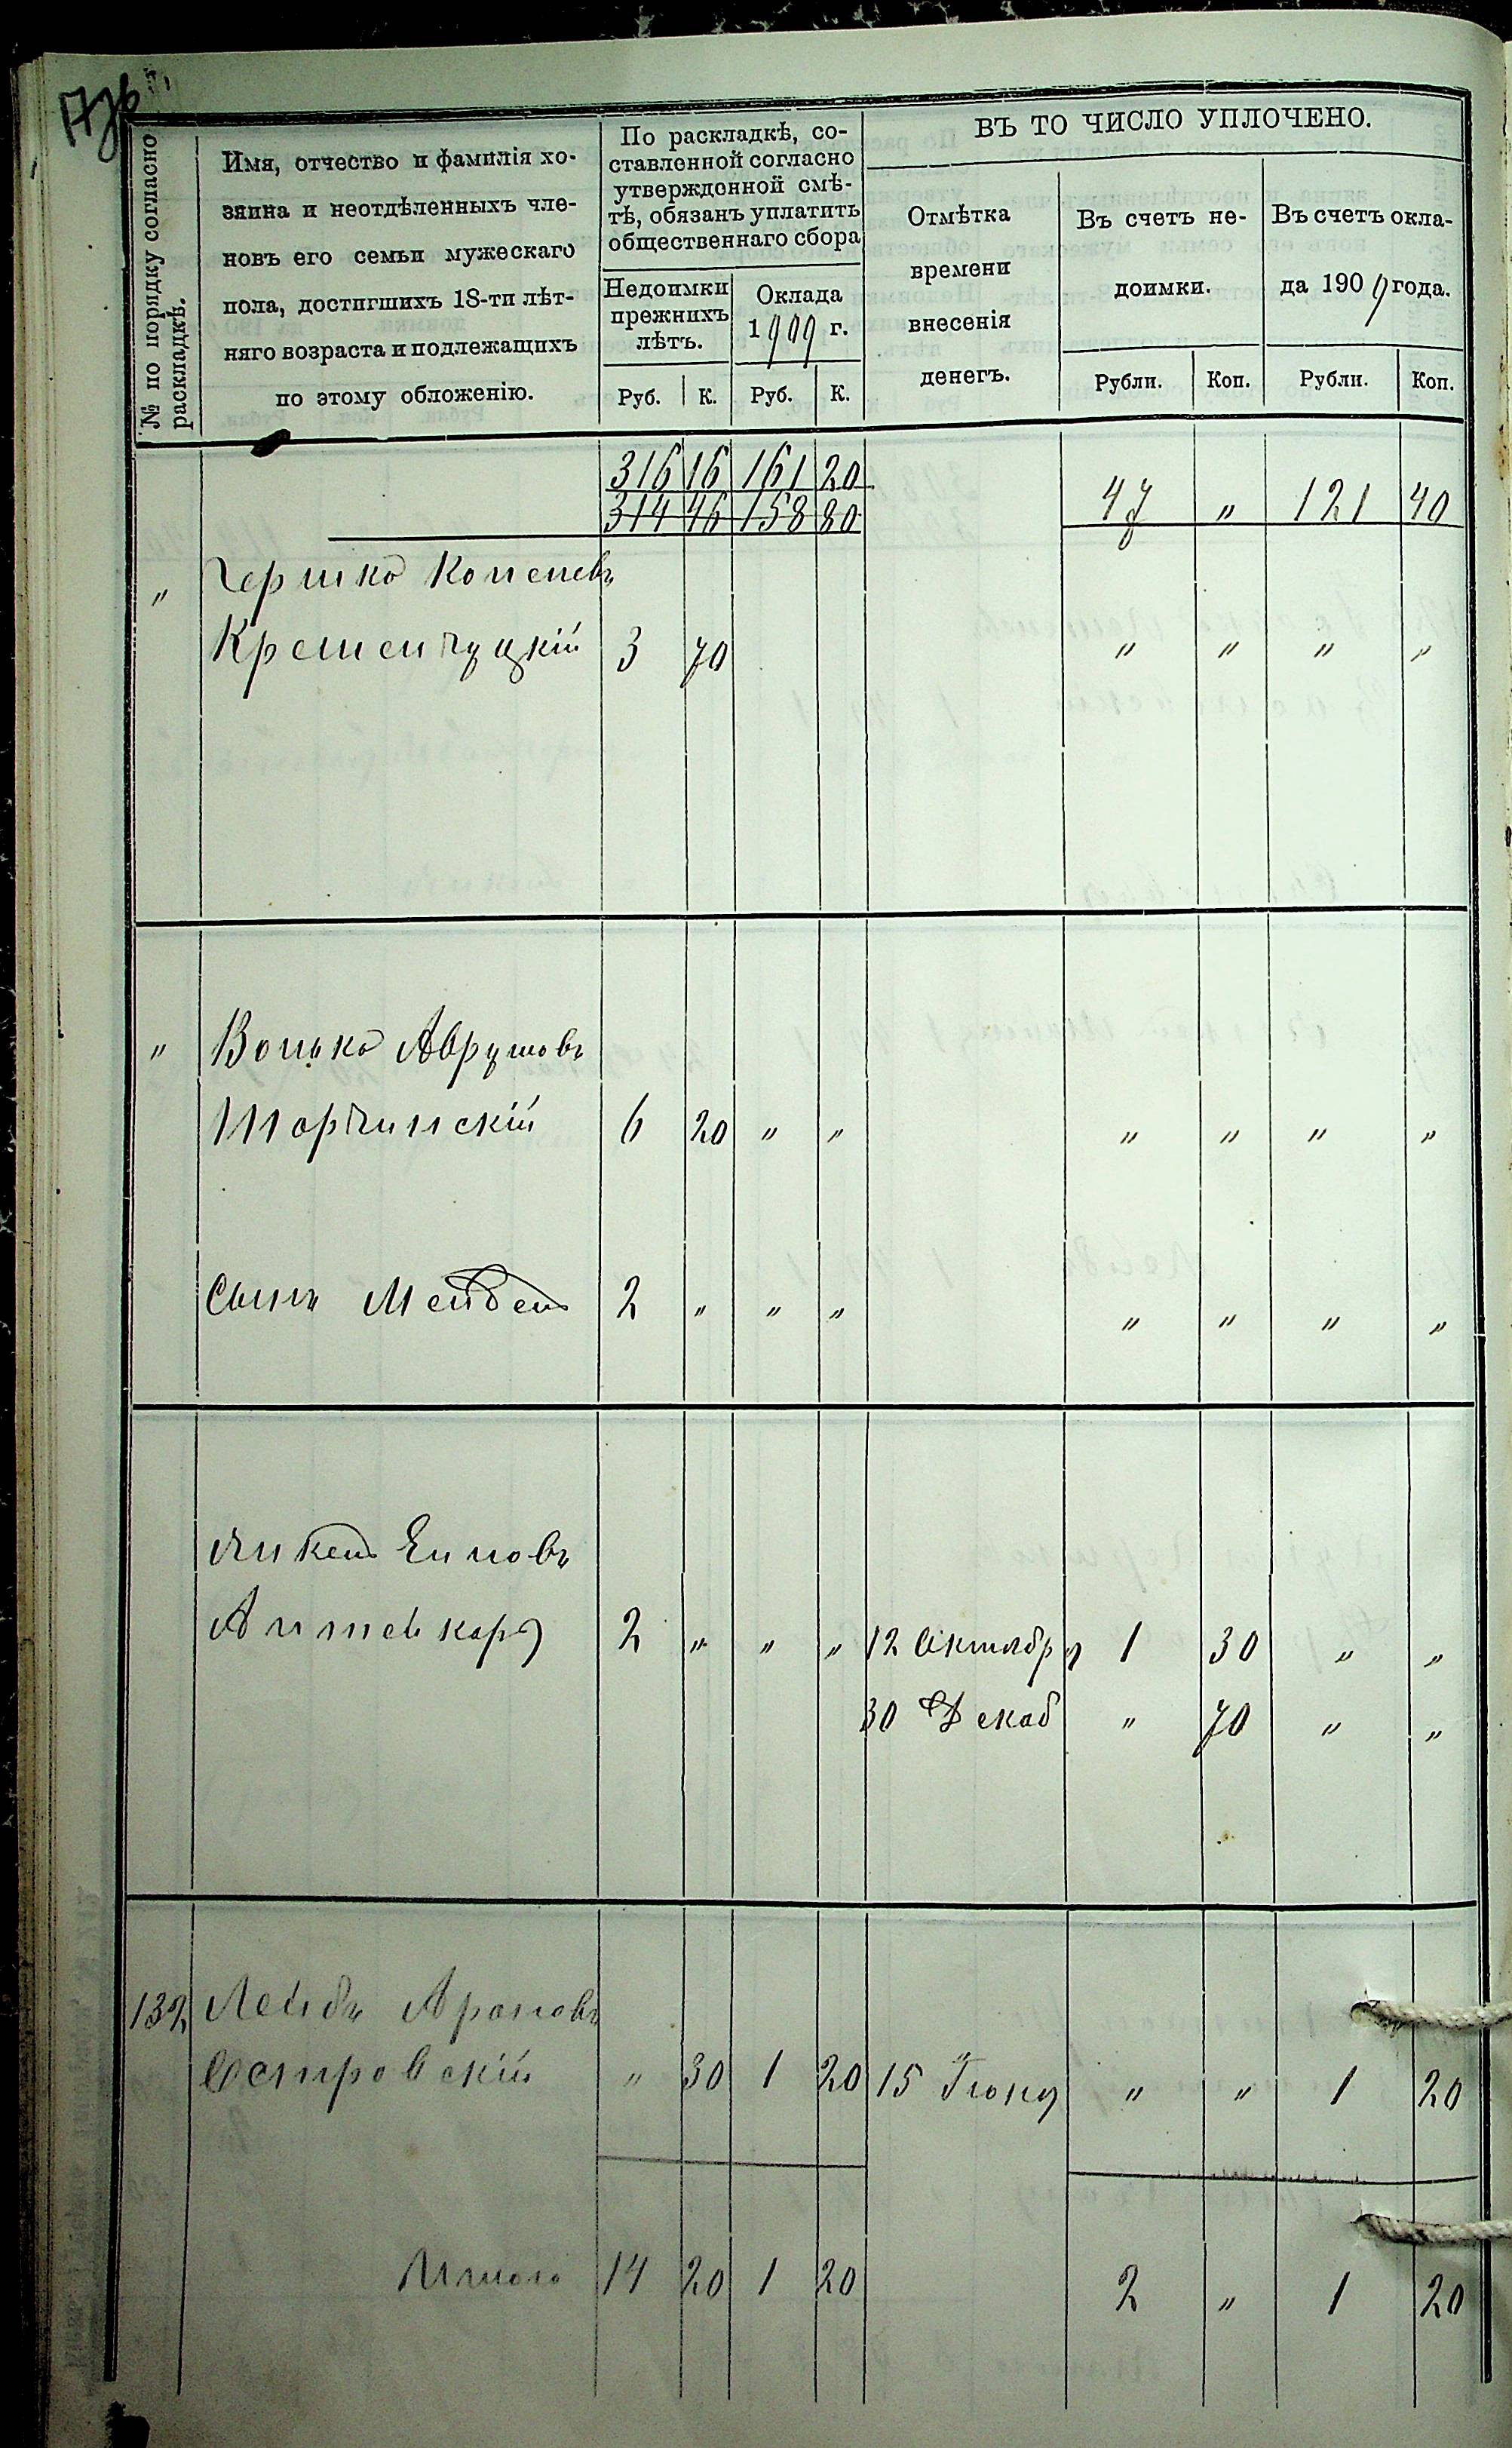 ВЪ ТО ЧИСЛО УПЛОЧЕНО.
№ по порядку согласно
раскладкѣ.
Имя, отчество и фамилія хо-
зяина и неотдѣленныхъ чле-
новъ его семьи мужескаго
пола, достигшихъ 18-ти лѣт-
няго возраста и подлежащихъ
по этому обложенію.
По раскладкѣ, со-
ставленной согласно
утвержденной смѣ-
тѣ, обязанъ уплатить
общественнаго сбора
Недоимки
прежнихъ
лѣтъ.
Оклада
1909 г.
Отмѣтка
времени
внесенія
денегъ.
Въ счетъ не-
доимки.
Въ счетъ окла-
да 1909 года.
Руб. К. Руб. К. Рубли. Коп. Рубли. Коп.
316 16 161 20
314 46 158 80 47 „ 121 40
„ Гершко
Кременчуцкій 3 70 „ „ „ „
„ Волько Аврумовъ
Торчинскій 6 20 „ „ „ „ „ „
Сынъ 2 „ „ „ „ „ „ „
2 „ „ „ 12 Октября 1 30 „ „
30 Декаб „ 70 „ „
132 Лейбъ Ароновъ
Островскій „ 30 1 20 15 Іюня „ „ 1 20
Итого 14 20 1 20 2 „ 1 20